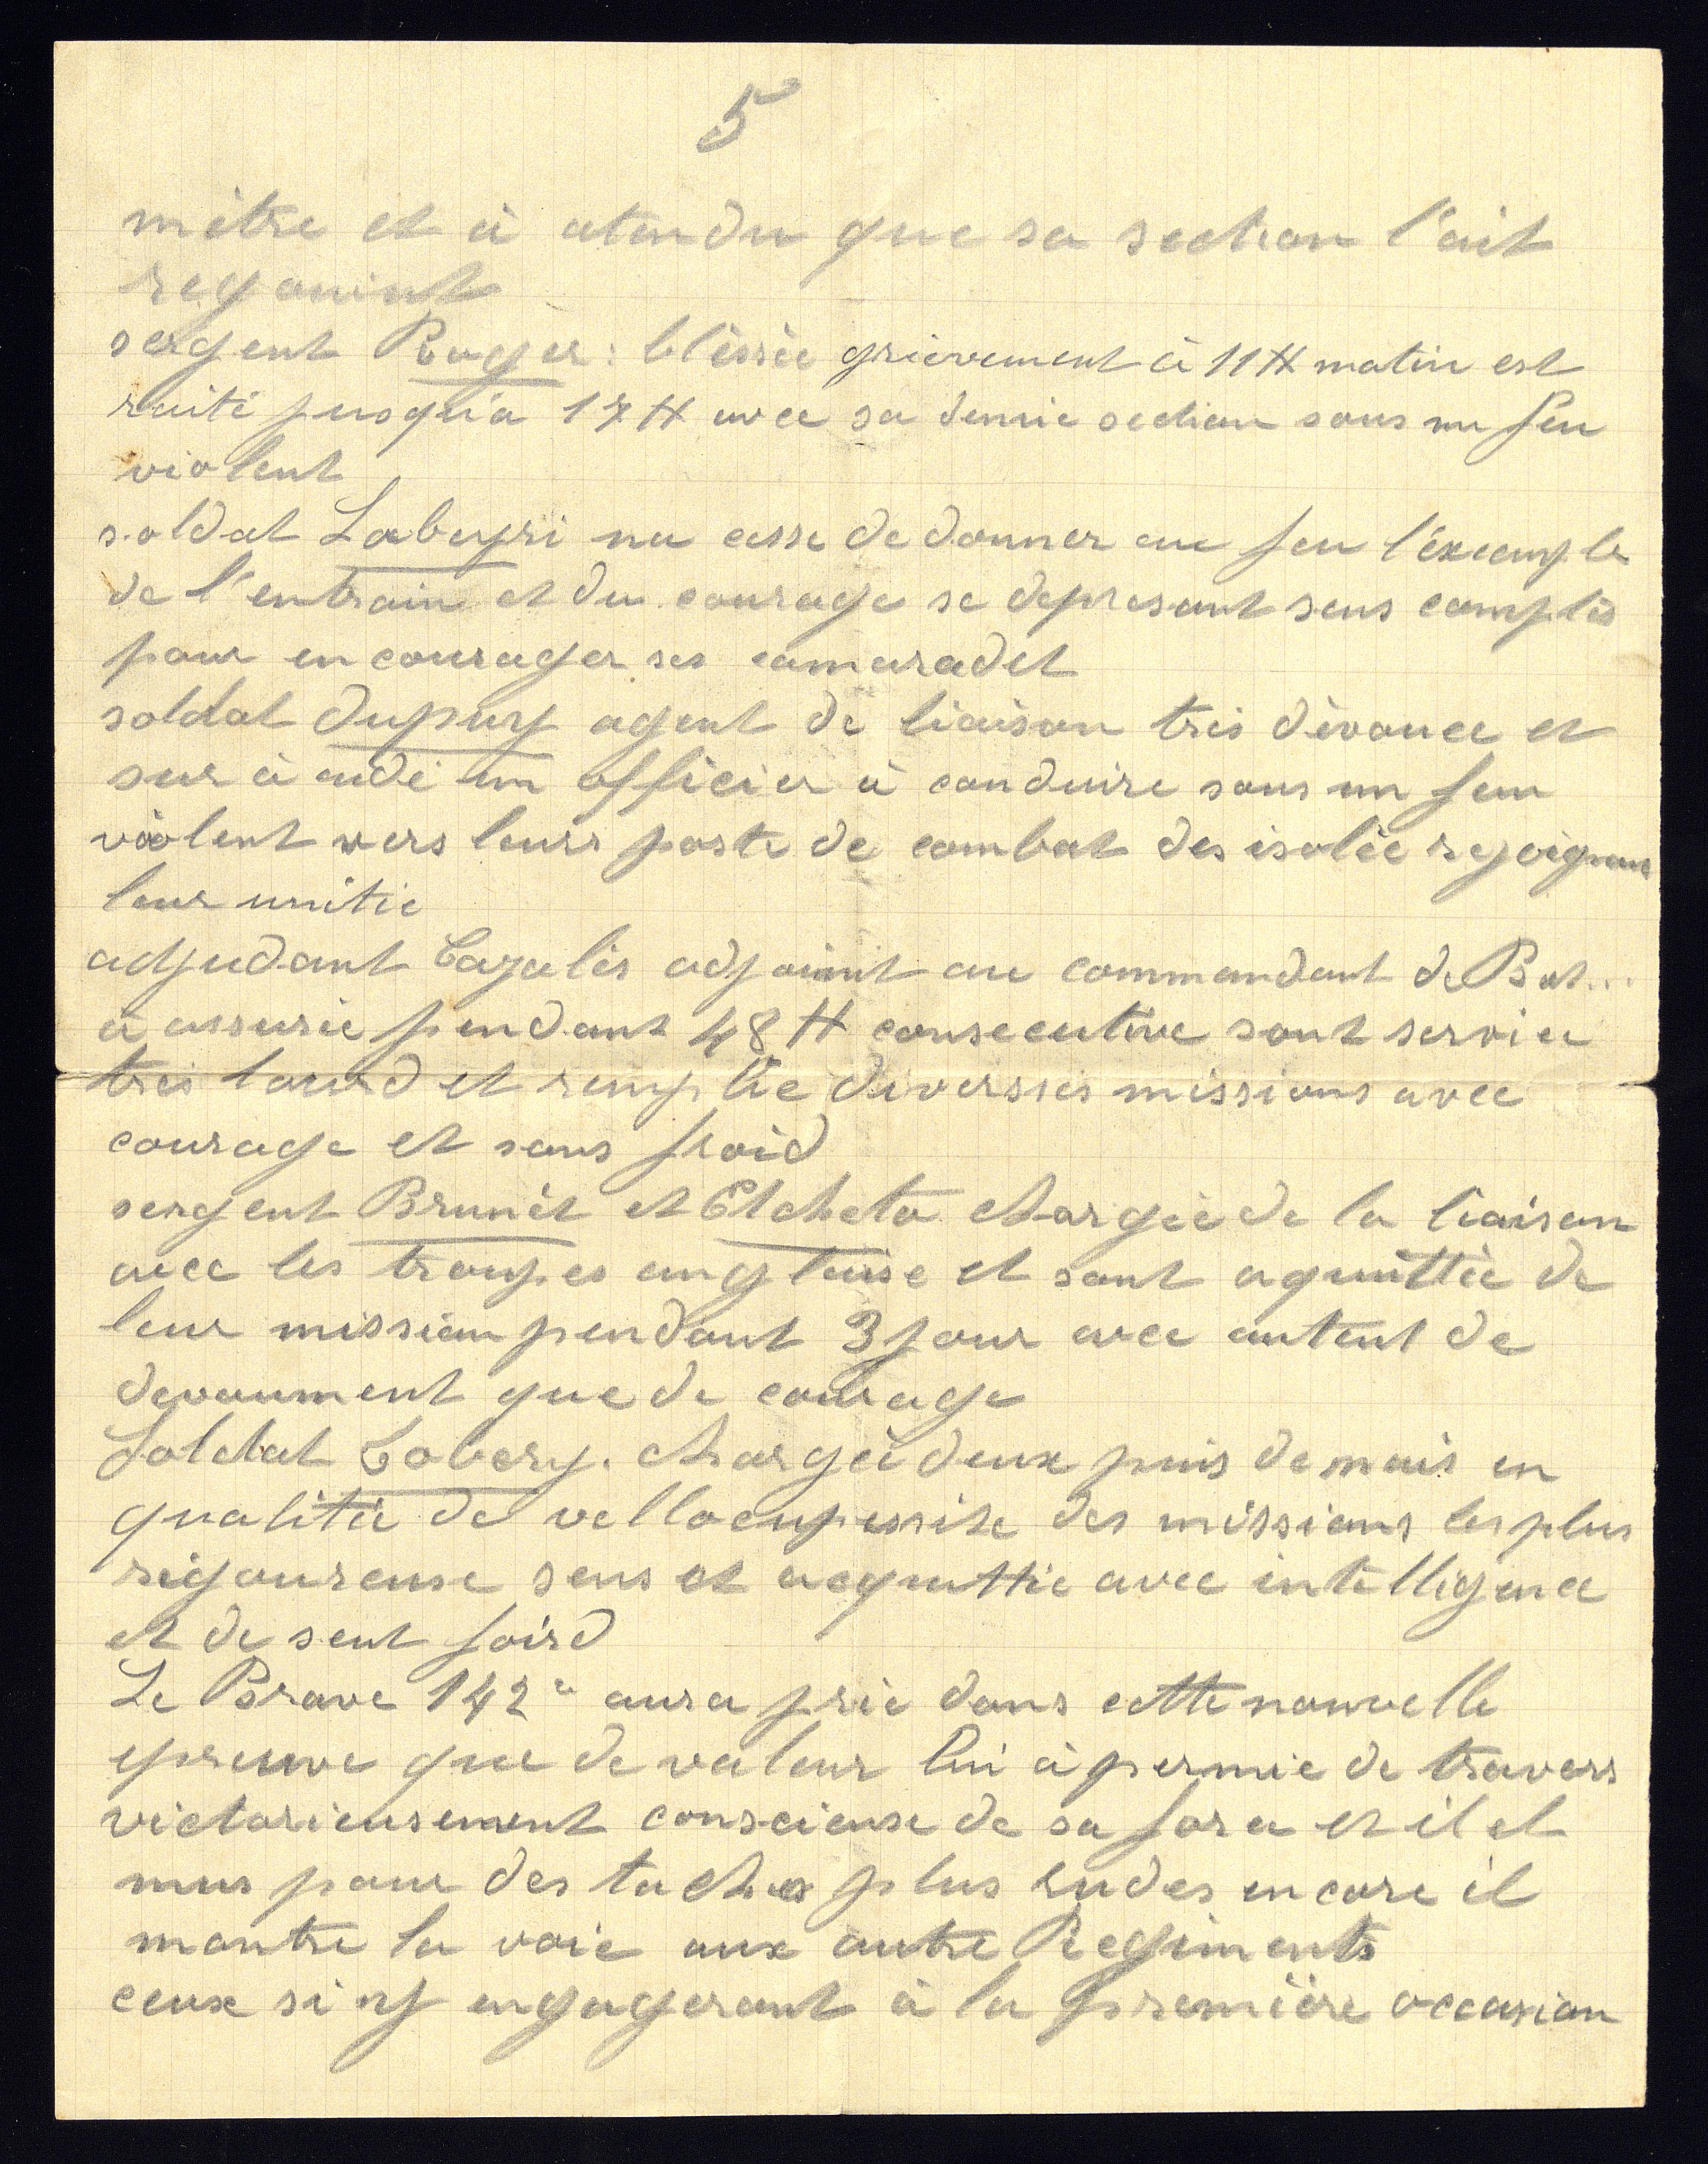 5
mètre et à atendu que sa section l'ait
regouint
sergent Roger : blèssèe grièvement à 11 H matin est
raité jusqu'a 17 H avec sa demie section sous un feu
violent
soldat Labeyri na cesse de donner au feu l'éxemple
de l'entrain et du courage se depresant sens complés
pour encourager ses camaradet
soldat Dupuy agent de liaison tres dévouee et
sur à aidé un officier à conduire sous un feu
violent vers leurs poste de combat des isolée rejoignans
leur unitie
adjudant Cazalès adjouint au commandant de Bat...
a assurée pendant 48 H consecutive sont service
tres lourd et remplie diversses missions avec
courage et sans froid
sergent Brunèt et Etcheto chargée de la liaison
avec les troupes anglaise et sont aquittée de
leur mission pendant 3 jour avec autent de
devoument que de courage
Soldat Lobery. chargée deux puis de mois en
qualitée de vellocupessite des missions les plus
rigoureuse sens et acquittée avec intelligence
et de sent foird
Le Brave 142e aura prie dans cette nouvelle
epreuve que de valeur lui à permie de travers
victorieusement conscieuse de sa force et il et
mur pour des taches plus rudes encore il
montre la voie aux autre Regiments
ceux si ny engageront à la première occasion